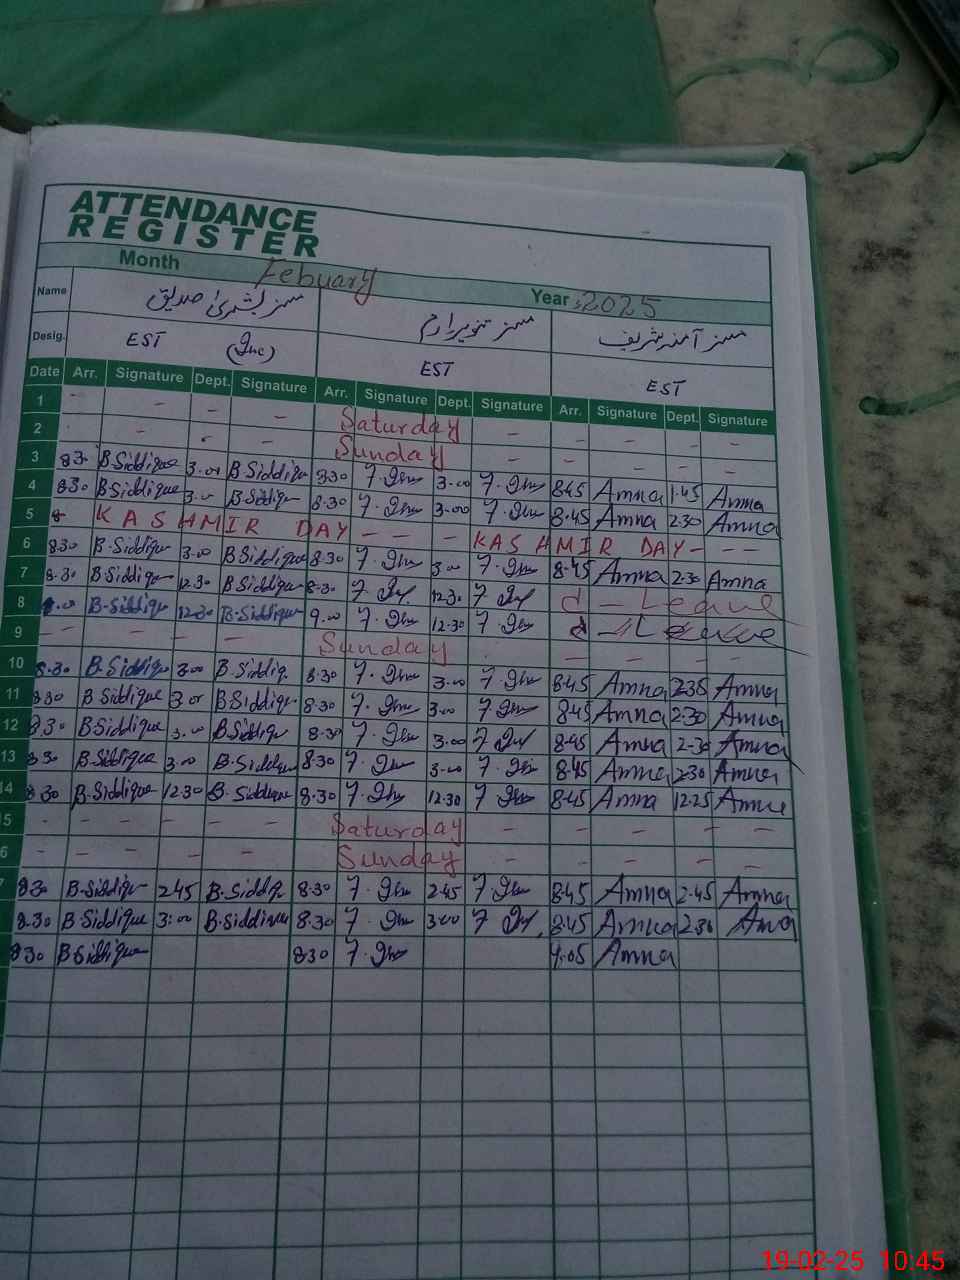 ATTENDANCE
REGISTER
Month Febuary Year 2025
Name مسز بشریٰ صدیق مسز تنویر ارم مسز آمنہ شریف
Desig. EST (Inc) EST EST
Date Arr. Signature Dept. Signature Arr. Signature Dept. Signature Arr. Signature Dept. Signature
1 - - - - Saturday - - - -
2 - - - Sunday - - - -
3 B.Siddique B.Siddique 8.30 3.00 8.45 Amna 1.45 Amna
4 8.30 B.Siddique 3.00 B.Siddique 8.30 3.00 8.45 Amna 2.30 Amna
5 KASHMIR DAY - - - KASHMIR DAY - - -
6 8.30 B.Siddique 3.00 B.Siddique 8.30 3.00 8.45 Amna 2.30 Amna
7 8.30 B.Siddique 12.30 B.Siddique 8.30 12.30 - Leave
8 B.Siddique 12.30 B.Siddique 9.00 12.30 Leave
9 - - - - - Sunday - - - -
10 8.30 B.Siddique 3.00 B.Siddiq. 8.30 3.00 8.45 Amna 2.35 Amna
11 8.30 B.Siddique B.Siddique 8.30 3.00 8.45 Amna 2.30 Amna
12 8.30 B.Siddique 3.00 B.Siddique 8.30 3.00 8.45 Amna 2.30 Amna
13 8.30 B.Siddique 3.00 B.Siddique 8.30 3.00 8.45 Amna 2.30 Amna
14 8.30 B.Siddique 12.30 B.Siddique 8.30 12.30 8.45 Amna 12.25 Amna
5 - - - - - - Saturday - - - -
6 - - - - - Sunday - - - -
7 8.30 B.Siddique 2.45 B.Siddiq 8.30 2.45 8.45 Amna 2.45 Amna
8.30 B.Siddique 3.00 B.Siddique 8.30 3.00 8.45 Amna 2.30 Amna
8.30 B.Siddique 8.30 9.05 Amna
19-02-25 10:45